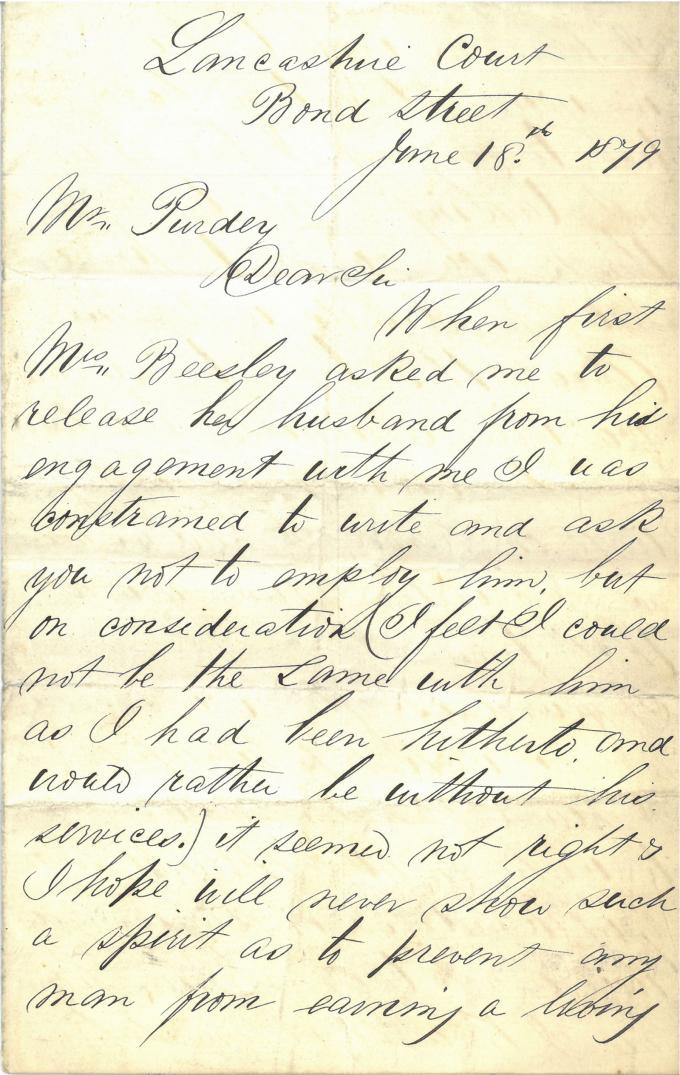 Lancashire Court
Bond Street
June 18th 1879
Mr. Purdey
Dear Sir
When first
Mrs. Beesley asked me to
release her husband from his
engagement with me I was
constrained to write and ask
you not to employ him, but
on consideration (I felt I could
not be the same with him
as I had been hitherto. and
would rather be without his
services.) it seemed not right &
I hope will never show such
a spirit as to prevent any
man from earning a living